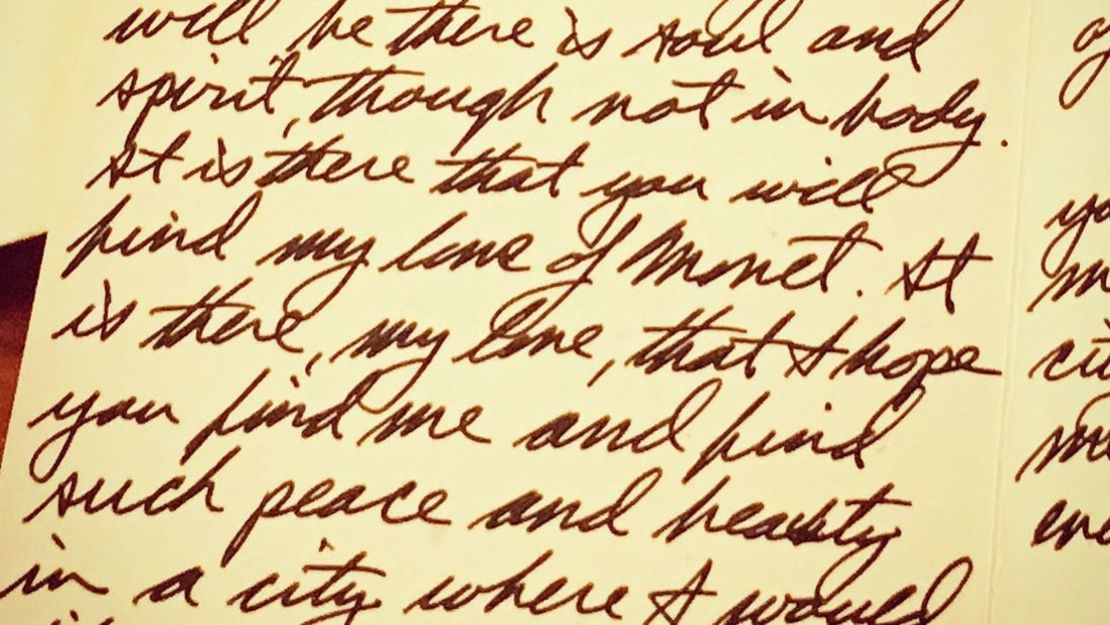 will be there is soul and
spirit, though not in body.
It is there that you will
find my love of Monet. It
is there, my love, that I hope
you find me and find
such peace and beauty
in a city where I would